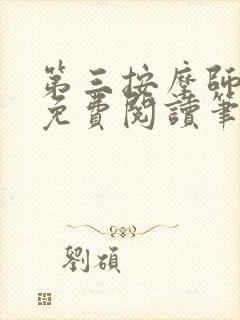 第三按摩師
免費閱讀筆
劉碩